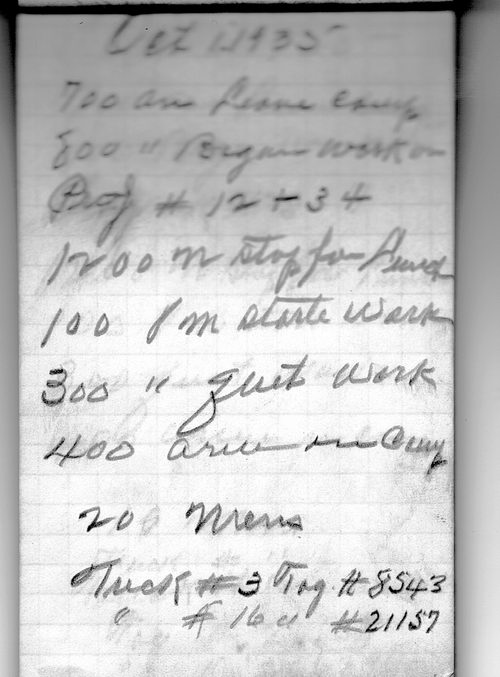 Oct 1 1935
700 am Leave Camp
800 " Began work on
Proj # 12 + 34
1200 M Stop for Lunch
100 PM Starte Work
300 " Quet Work
400 arive in Camp
20 Mens
Truck # 3 Tag # 8543
" # 16 " # 21157